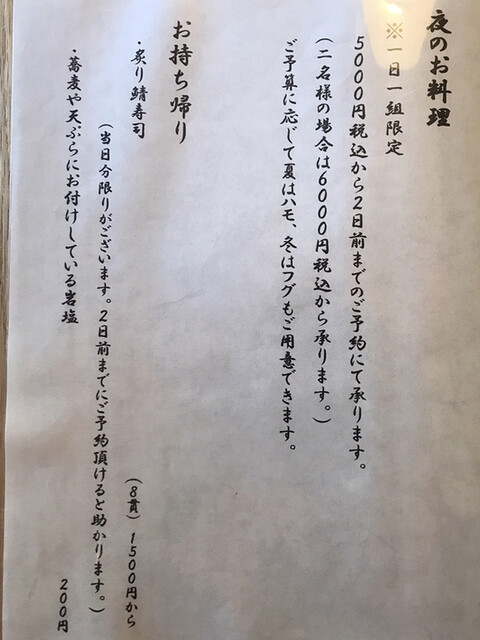 夜のお料理
※一日一組限定
5000円税込から2日前までのご予約にて承ります。
(二名様の場合は6000円税込から承ります。)
ご予算に応じて夏はハモ、冬はフグもご用意できます。
お持ち帰り
・炙り鯖寿司 (8貫) 1500円から
(当日分限りがございます。2日前までにご予約頂けると助かります。)
・蕎麦や天ぷらにお付けしている岩塩 200円